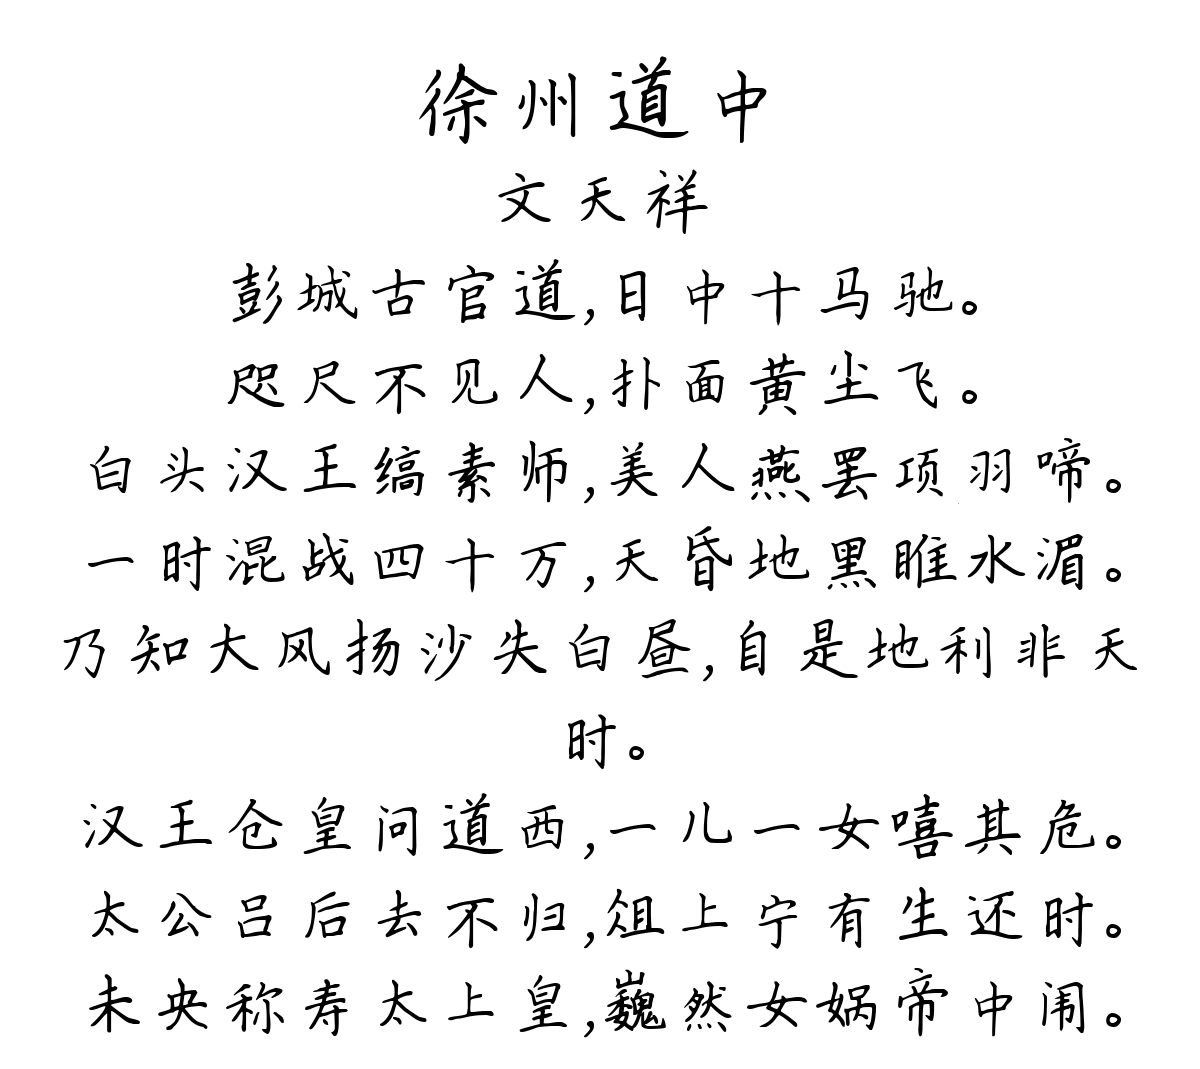 徐州道中
文天祥
彭城古官道,日中十马驰。
咫尺不见人,扑面黄尘飞。
白头汉王缟素师,美人燕罢项羽啼。
一时混战四十万,天昏地黑睢水湄。
乃知大风扬沙失白昼,自是地利非天
时。
汉王仓皇问道西,一儿一女嘻其危。
太公吕后去不归,俎上宁有生还时。
未央称寿太上皇,巍然女娲帝中闱。